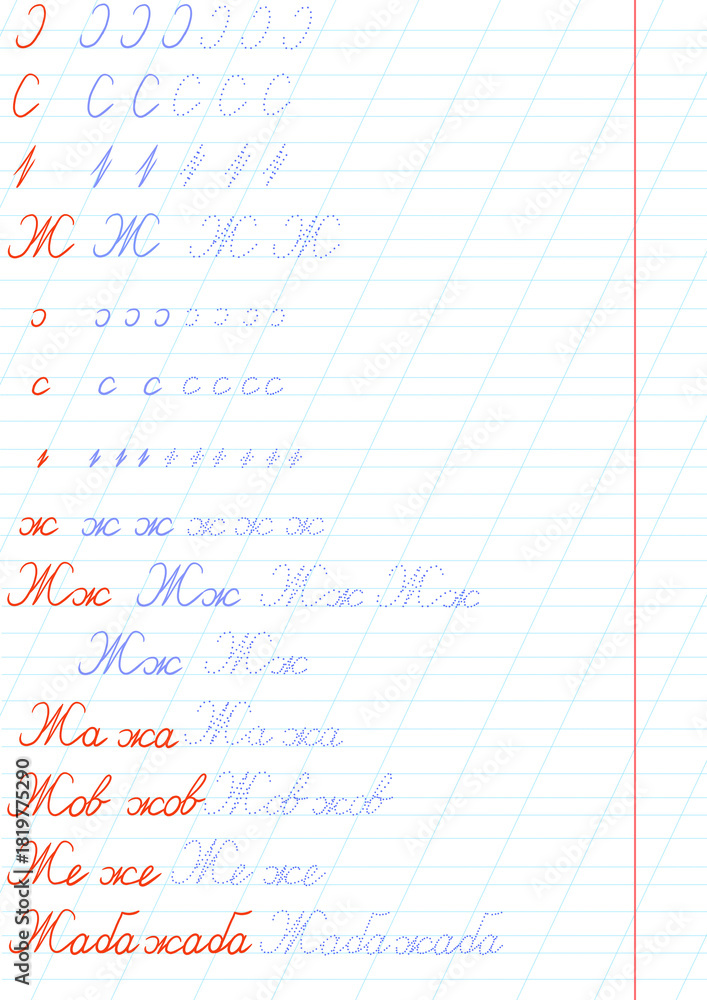 Ж Ж Ж Ж
ж ж ж ж ж ж
Жж Жж Жж Жж
Жж Жж
Жа жа Жа жа
Жов жов Жов жов
Же же Же же
Жаба жаба Жаба жаба
Adobe Stock | #1819775290